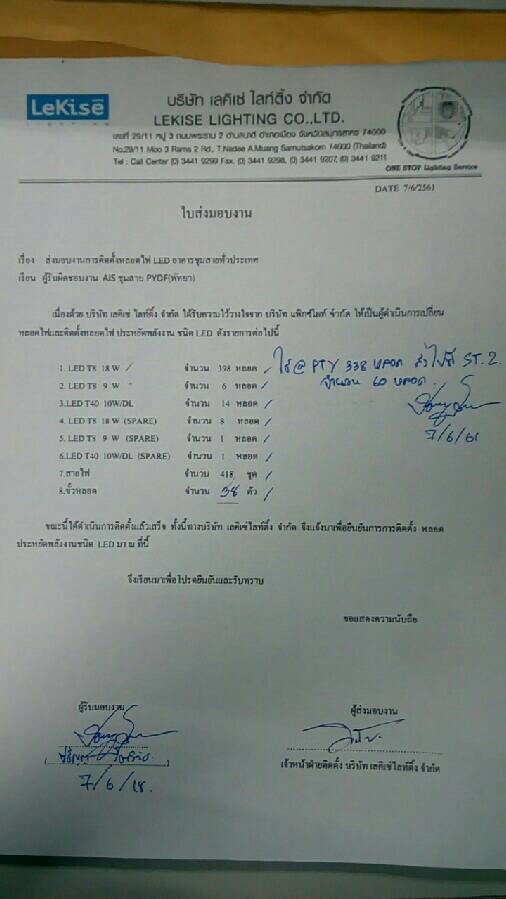 LeKise
LIGHTING
บริษัท เลคิเซ่ ไลท์ติ้ง จำกัด
LEKISE LIGHTING CO.,LTD.
เลขที่ 29/11 หมู่ 3 ถนนพระราม 2 ตำบลนาดี อำเภอเมือง จังหวัดสมุทรสาคร 74000
No.29/11 Moo 3 Rama 2 Rd., T.Nadee A.Muang Samutsakorn 74000 (Thailand)
Tel : Call Center (0) 3441 9299 Fax. (0) 3441 9298, (0) 3441 9207, (0) 3441 9211
ONE STOP Lighting Service
DATE 7/6/2561
ใบส่งมอบงาน
เรื่อง ส่งมอบงานการติดตั้งหลอดไฟ LED อาคารชุมสายทั่วประเทศ
เรียน ผู้รับผิดชอบงาน AIS ชุมสาย PYDF(พัทยา)
เนื่องด้วย บริษัท เลคิเซ่ ไลท์ติ้ง จำกัด ได้รับความไว้วางใจจาก บริษัท แฟ็กซ์ไลท์ จำกัด ให้เป็นผู้ดำเนินการเปลี่ยน
หลอดไฟและติดตั้งหลอดไฟ ประหยัดพลังงาน ชนิด LED ดังรายการต่อไปนี้
1. LED T8 18 W / จำนวน 398 หลอด / ใช้ @ PTY 338 หลอด ส่งไปที่ ST.2
จำนวน 60 หลอด
2. LED T8 9 W จำนวน 6 หลอด /
3.LED T40 10W/DL จำนวน 14 หลอด /
4. LED T8 18 W (SPARE) จำนวน 8 หลอด /
7/6/61
5. LED T8 9 W (SPARE) จำนวน 1 หลอด /
6.LED T40 10W/DL (SPARE) จำนวน 1 หลอด /
7.สายไฟ จำนวน 418 ชุด /
8.ขั้วหลอด จำนวน 38 ตัว /
ขณะนี้ได้ดำเนินการติดตั้งแล้วเสร็จ ทั้งนี้ทางบริษัท เลคิเซ่ไลท์ติ้ง จำกัด จึงแจ้งมาเพื่อยืนยันการการติดตั้ง หลอด
ประหยัดพลังงานชนิด LED มา ณ ที่นี้
จึงเรียนมาเพื่อโปรดยืนยันและรับทราบ
ขอแสดงความนับถือ
ผู้รับมอบงาน
ผู้ส่งมอบงาน
เจ้าหน้าฝ่ายติดตั้ง บริษัท เลคิเซ่ไลท์ติ้ง จำกัด
7/6/18.